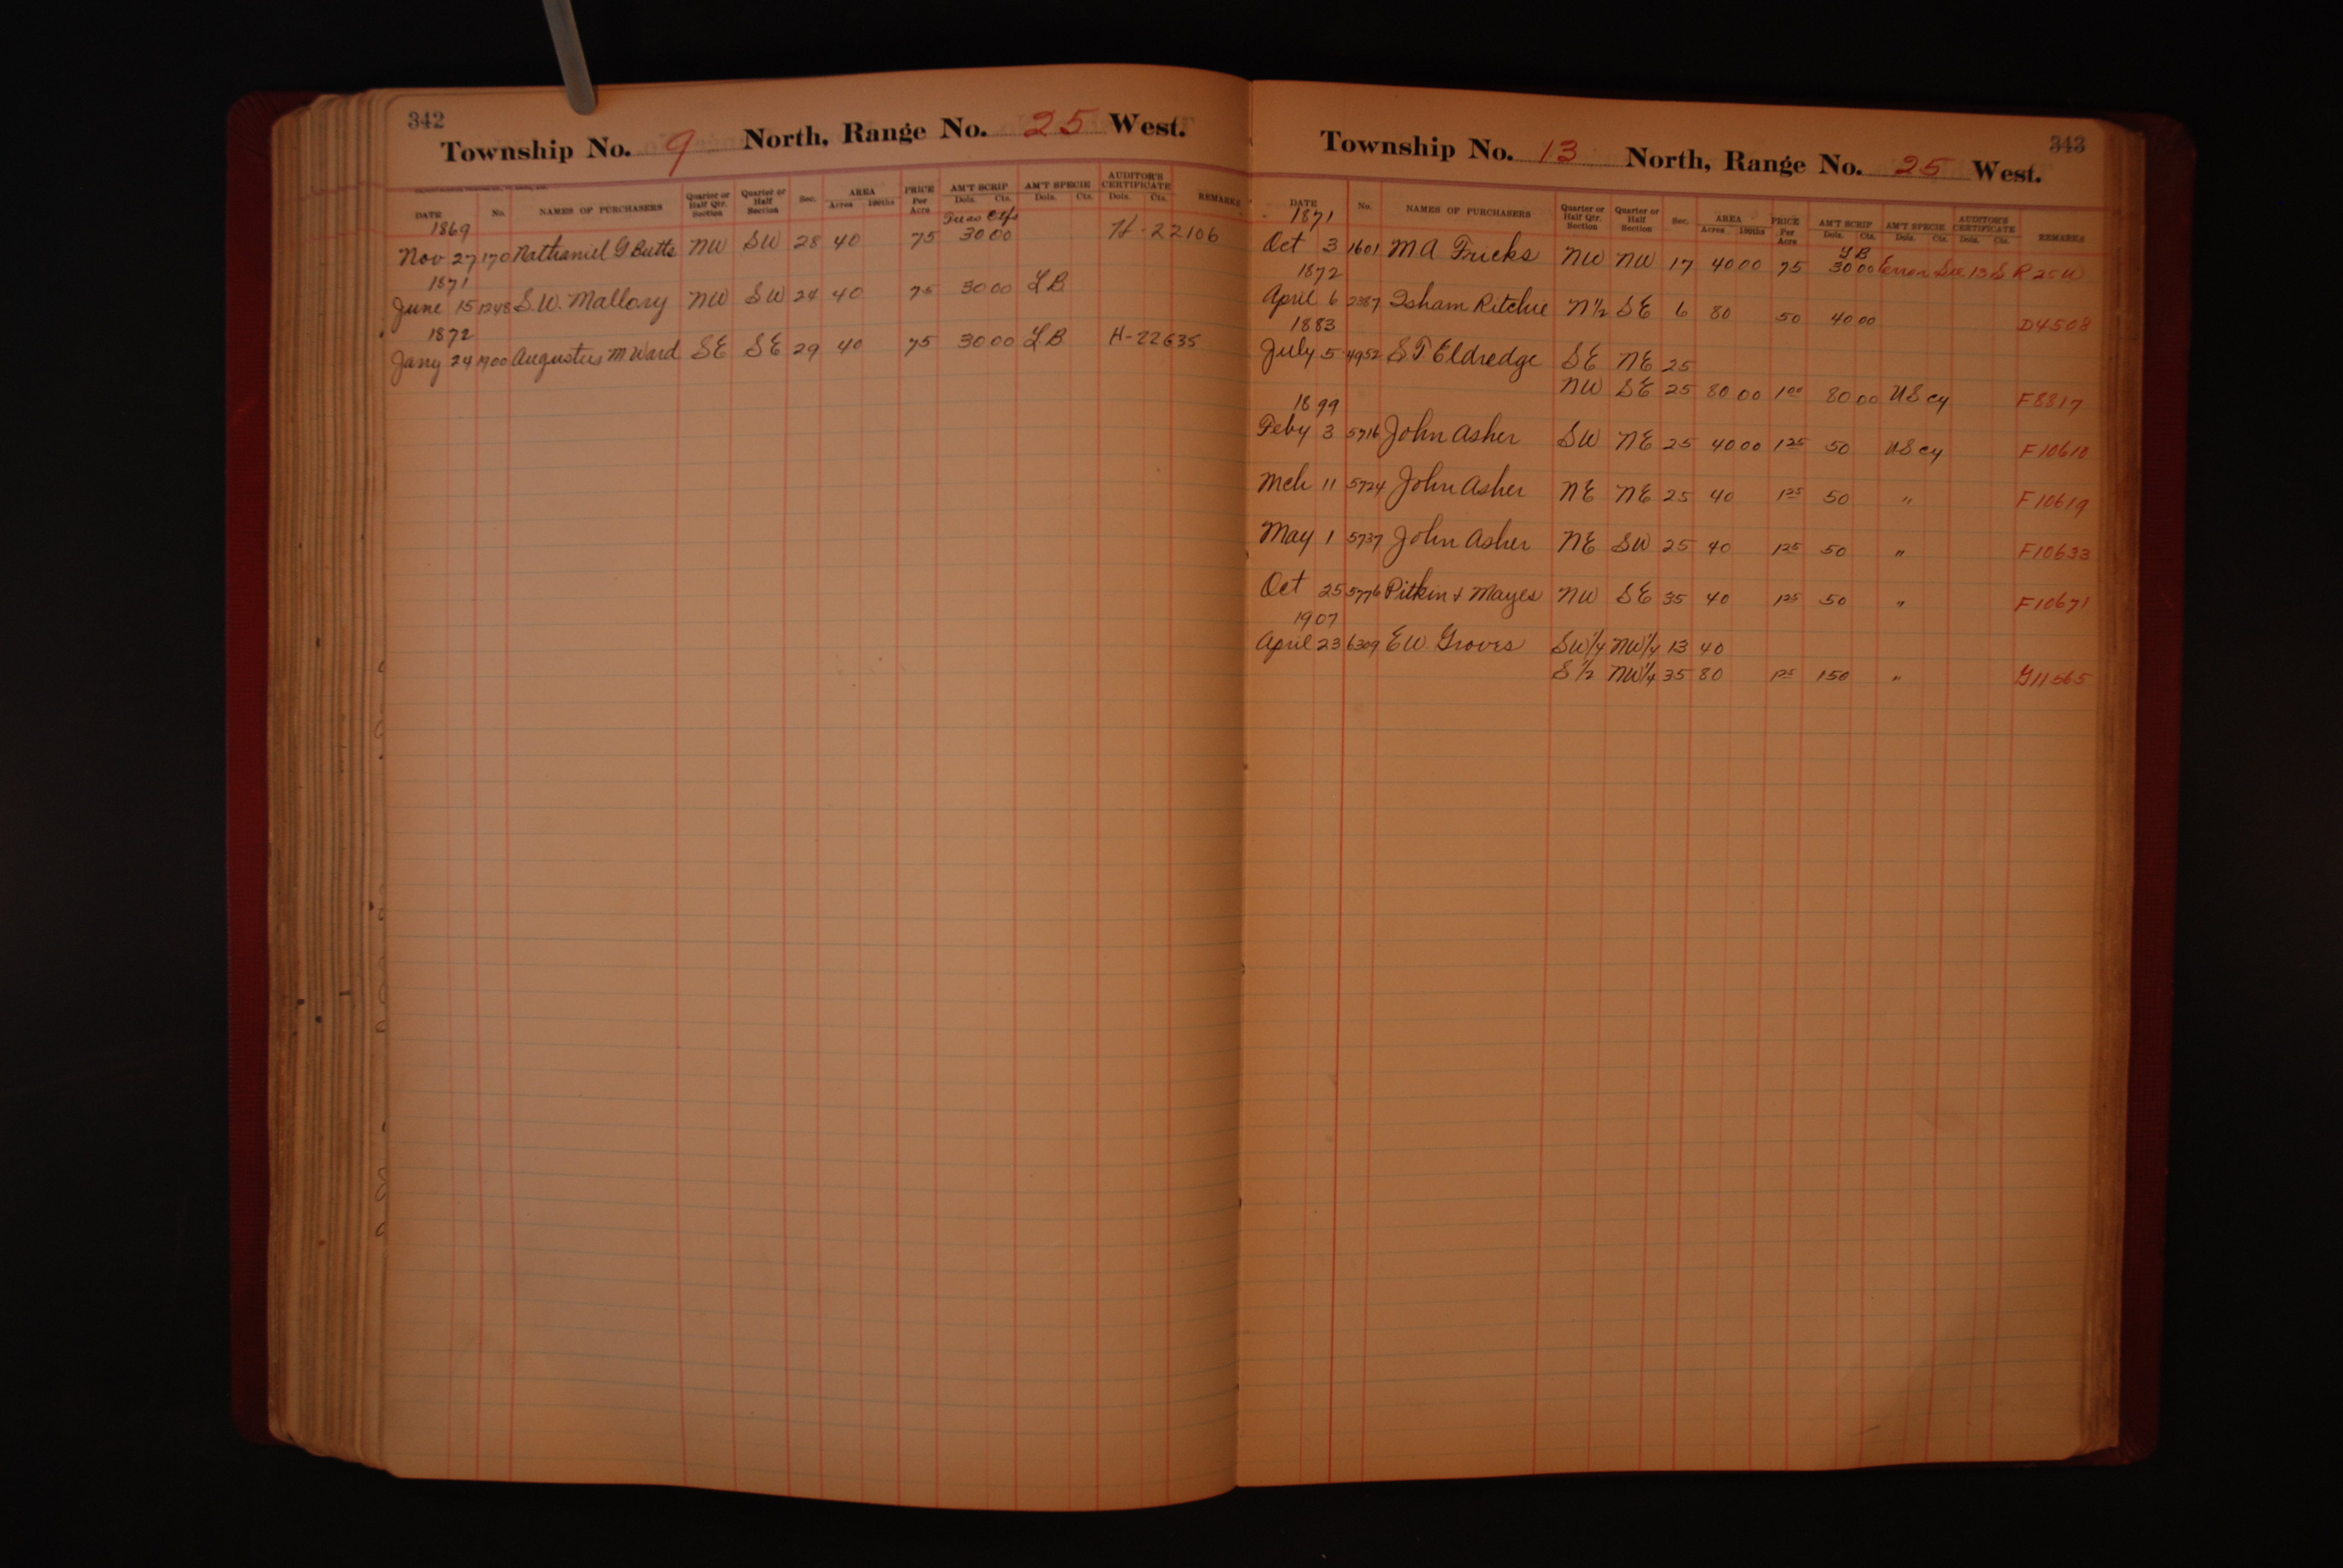 342
Township No. 9 North, Range No. 25 West.
DATE No. NAMES OF PURCHASERS Quarter or Half Qtr. Section Quarter or Half Section Sec. AREA Acres 100ths PRICE Per Acre AM'T SCRIP Dols. Cts. AM'T SPECIE Dols. Cts. AUDITOR'S CERTIFICATE Dols. Cts. REMARKS
1869
Nov 27 170 Nathaniel G Butts NW SW 28 40 75 30 00 H-22106
1871
June 15 1248 S.W. Mallory NW SW 24 40 75 30 00 LB
1872
Jany 24 1900 Augustus M Ward SE SE 29 40 75 30 00 LB H-22635
343
Township No. 13 North, Range No. 25 West.
DATE No. NAMES OF PURCHASERS Quarter or Half Qtr. Section Quarter or Half Section Sec. AREA Acres 100ths PRICE Per Acre AM'T SCRIP Dols. Cts. AM'T SPECIE Dols. Cts. AUDITOR'S CERTIFICATE Dols. Cts. REMARKS
1871 LB
Oct 3 1601 M A Fricks NW NW 17 40 00 75 30 00 Error See 13 S R 25 W
1872
April 6 2387 Isham Ritchie N½ SE 6 80 50 40 00 D4508
1883
July 5 4952 S T Eldredge SE NE 25
NW SE 25 80 00 1 00 80 00 US cy F8817
1899
Feby 3 5716 John Asher SW NE 25 40 00 1 25 50 US cy F10610
Mch 11 5724 John Asher NE NE 25 40 1 25 50 " F10619
May 1 5737 John Asher NE SW 25 40 1 25 50 " F10633
Oct 25 5776 Pitkin & Mayes NW SE 35 40 1 25 50 " F10671
1907
April 23 6309 E W Groves SW¼ NW¼ 13 40
S½ NW¼ 35 80 1 25 150 " G11565